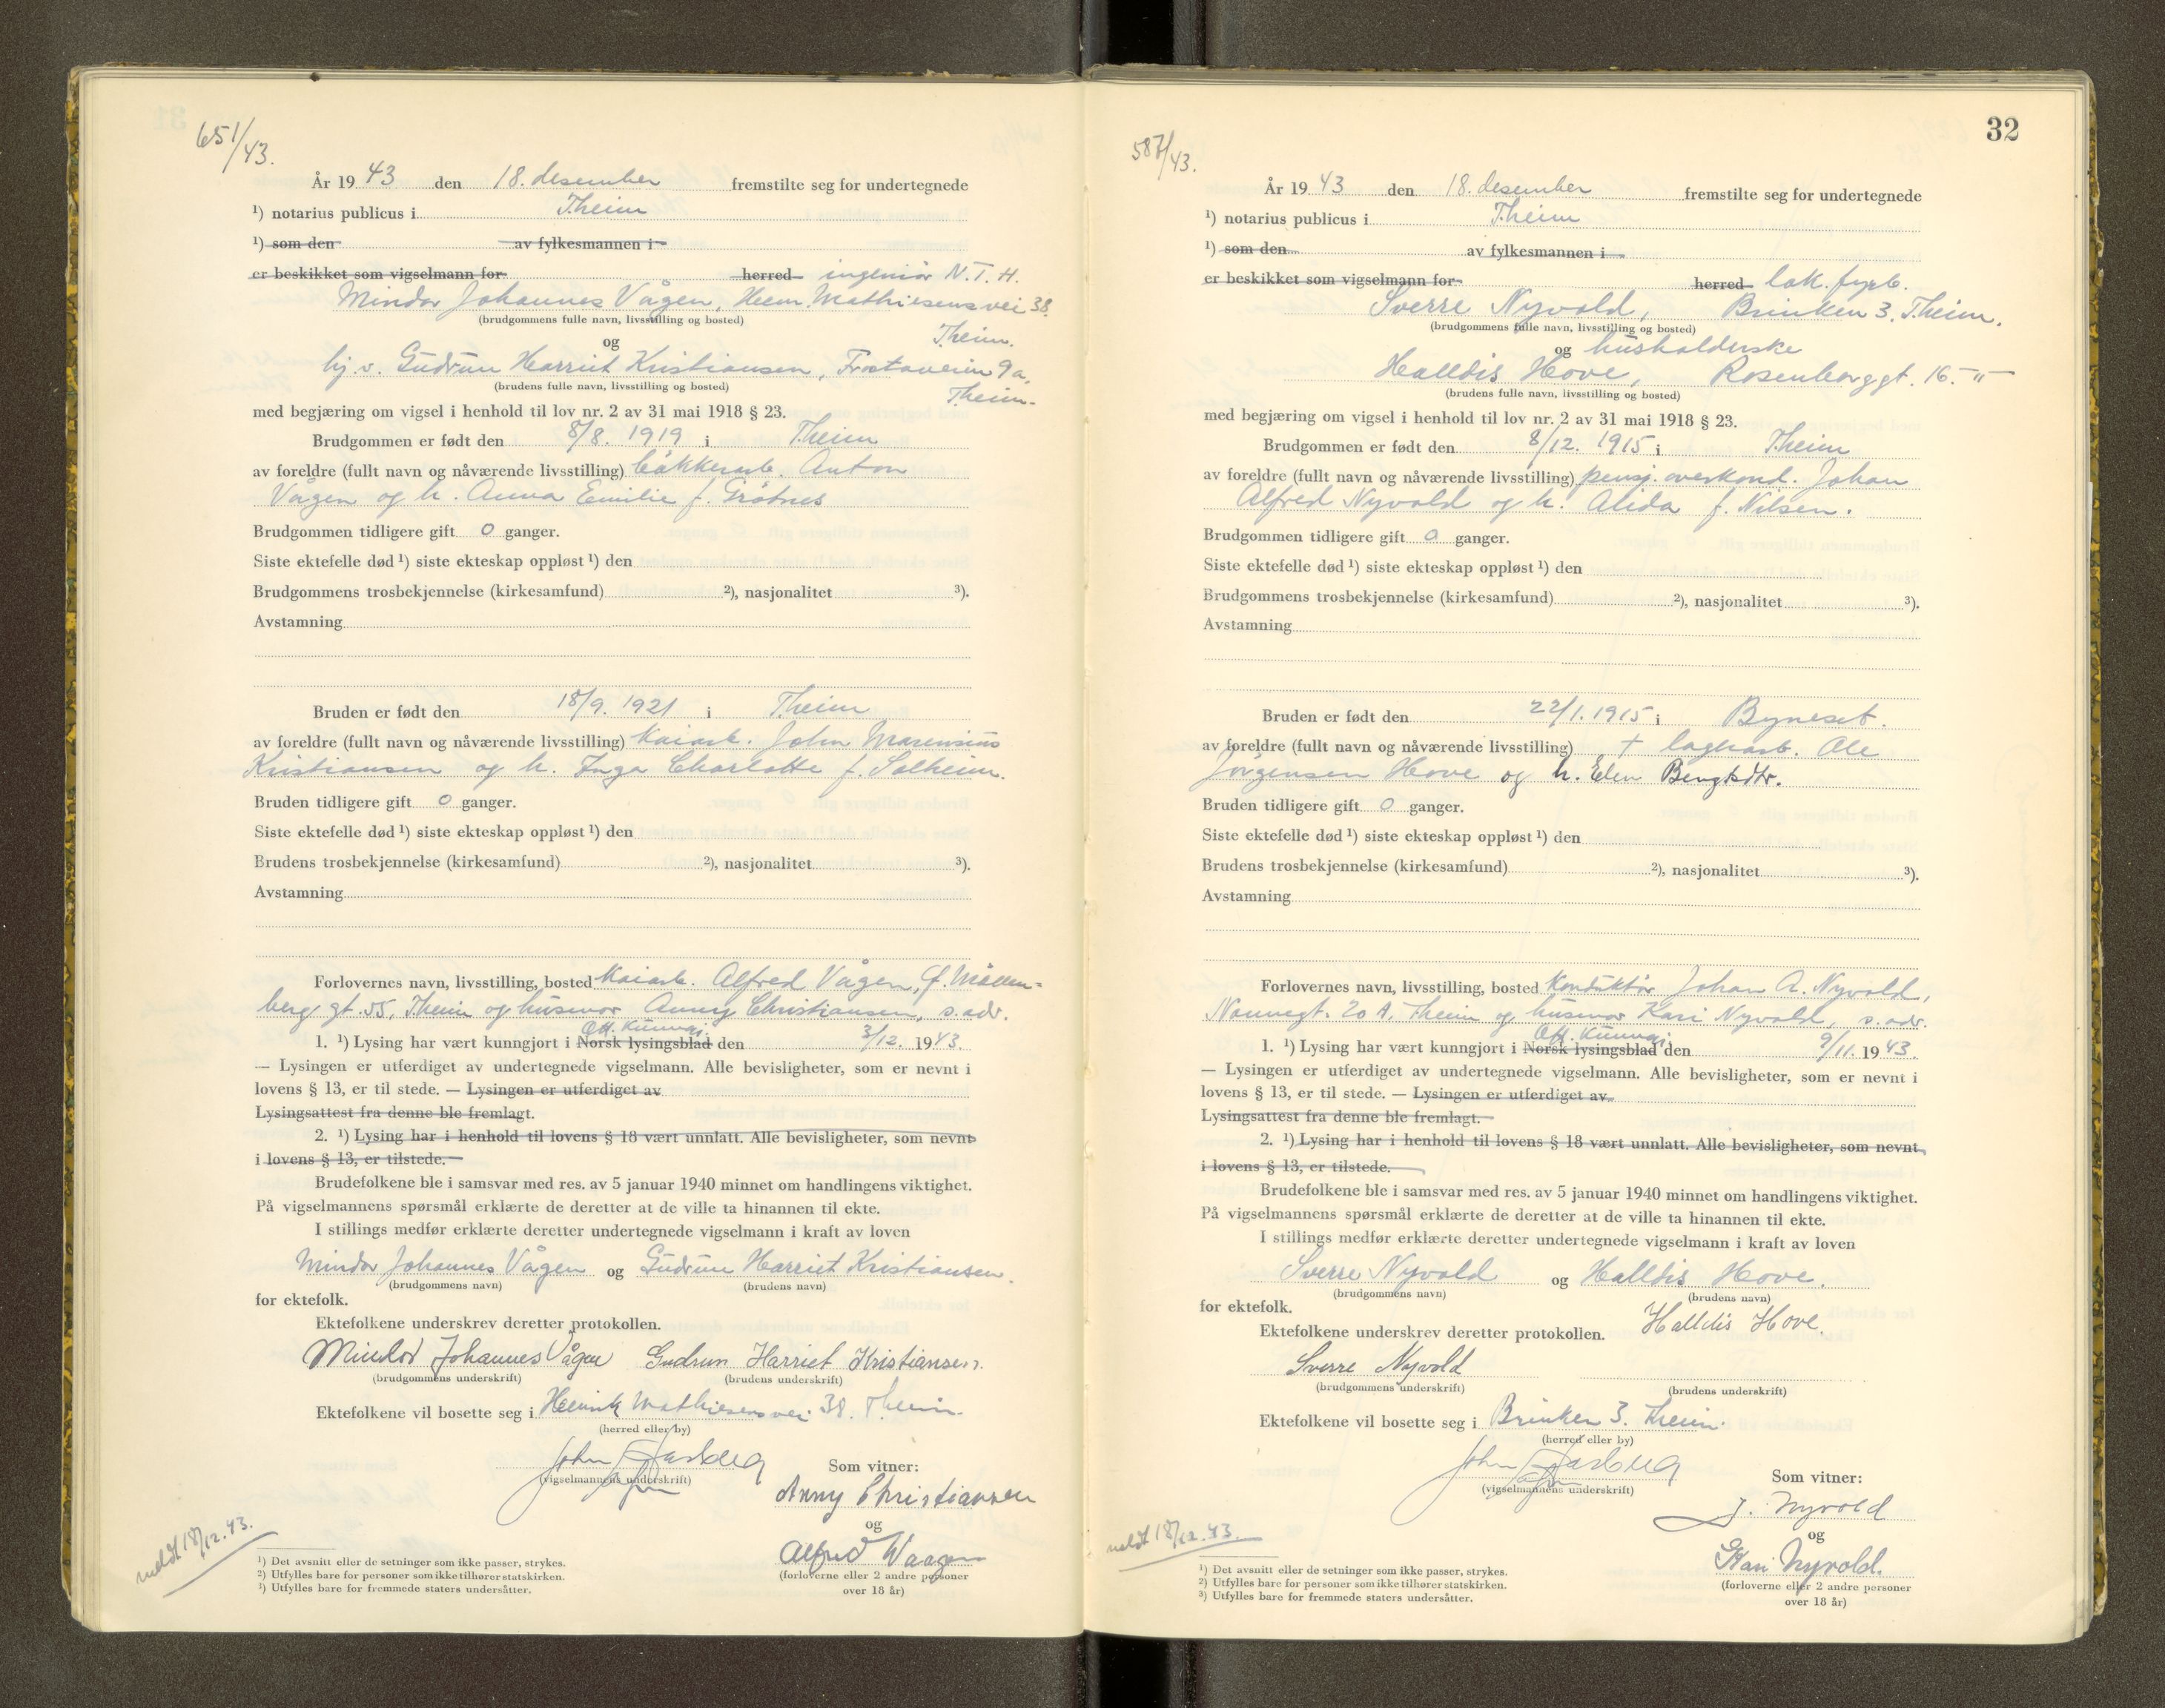 651/43.
År 1943 den 18. desember fremstilte seg for undertegnede
¹) notarius publicus i T.heim
¹) som den av fylkesmannen i
er beskikket som vigselmann for herred ingeniør N.T.H.
Mindor Johannes Vågen, Henr. Mathiesens vei 38.
(brudgommens fulle navn, livsstilling og bosted)
T.heim.
og
hj.v. Gudrun Harriet Kristiansen, Frostaveien 9a,
(brudens fulle navn, livsstilling og bosted)
T.heim.
med begjæring om vigsel i henhold til lov nr. 2 av 31 mai 1918 § 23.
Brudgommen er født den 8/8. 1919 i T.heim
av foreldre (fullt navn og nåværende livsstilling) Anton
Vågen og h. Anna Emilie f. Grötnes
Brudgommen tidligere gift 0 ganger.
Siste ektefelle død ¹) siste ekteskap oppløst ¹) den
Brudgommens trosbekjennelse (kirkesamfund) ²), nasjonalitet ³).
Avstamning
Bruden er født den 18/9. 1921 i T.heim
av foreldre (fullt navn og nåværende livsstilling) Kaiarb. John Marensius
Kristiansen og h. Inga Charlotte f. Solheim.
Bruden tidligere gift 0 ganger.
Siste ektefelle død ¹) siste ekteskap oppløst ¹) den
Brudens trosbekjennelse (kirkesamfund) ²), nasjonalitet ³).
Avstamning
Forlovernes navn, livsstilling, bosted Kaiarb. Alfred Vågen, f. Möllen-
berg gt. 55, T.heim og husmor Anny Christiansen, s. adr.
Off. Kunngj.
1. ¹) Lysing har vært kunngjort i Norsk lysingsblad den 3/12. 1943.
— Lysingen er utferdiget av undertegnede vigselmann. Alle bevisligheter, som er nevnt i
lovens § 13, er til stede. — Lysingen er utferdiget av
Lysingsattest fra denne ble fremlagt.
2. ¹) Lysing har i henhold til lovens § 18 vært unnlatt. Alle bevisligheter, som nevnt
i lovens § 13, er tilstede.
Brudefolkene ble i samsvar med res. av 5 januar 1940 minnet om handlingens viktighet.
På vigselmannens spørsmål erklærte de deretter at de ville ta hinannen til ekte.
I stillings medfør erklærte deretter undertegnede vigselmann i kraft av loven
Mindor Johannes Vågen og Gudrun Harriet Kristiansen.
(brudgommens navn) (brudens navn)
for ektefolk.
Ektefolkene underskrev deretter protokollen.
Mindor Johannes Vågen Gudrun Harriet Kristiansen.
(brudgommens underskrift) (brudens underskrift)
Ektefolkene vil bosette seg i Henrik Mathiesens vei 38. T.heim.
(herred eller by)
(vigselmannens underskrift)
Som vitner:
Anny Christiansen
og
Alfred Waagen
(forloverne eller 2 andre personer
over 18 år)
meldt 18/12.43.
¹) Det avsnitt eller de setninger som ikke passer, strykes.
²) Utfylles bare for personer som ikke tilhører statskirken.
³) Utfylles bare for fremmede staters undersåtter.
32
587/43.
År 1943 den 18. desember fremstilte seg for undertegnede
¹) notarius publicus i T.heim
¹) som den av fylkesmannen i
er beskikket som vigselmann for herred lok.fyrb.
Sverre Nyvold, Brinken 3. T.heim.
(brudgommens fulle navn, livsstilling og bosted)
og husholderske
Halldis Hove, Rosenborggt. 16. -"-
(brudens fulle navn, livsstilling og bosted)
med begjæring om vigsel i henhold til lov nr. 2 av 31 mai 1918 § 23.
Brudgommen er født den 8/12. 1915 i T.heim
av foreldre (fullt navn og nåværende livsstilling) pensj. overkond. Johan
Alfred Nyvold og h. Alida f. Nilsen.
Brudgommen tidligere gift 0 ganger.
Siste ektefelle død ¹) siste ekteskap oppløst ¹) den
Brudgommens trosbekjennelse (kirkesamfund) ²), nasjonalitet ³).
Avstamning
Bruden er født den 22/1. 1915 i Byneset.
av foreldre (fullt navn og nåværende livsstilling) † lagerarb. Ole
Jörgensen Hove og h. Elen Bengtsdtr.
Bruden tidligere gift 0 ganger.
Siste ektefelle død ¹) siste ekteskap oppløst ¹) den
Brudens trosbekjennelse (kirkesamfund) ²), nasjonalitet ³).
Avstamning
Forlovernes navn, livsstilling, bosted Konduktör Johan A. Nyvold,
Nonnegt. 20 A, T.heim og husmor Kari Nyvold, s. adr.
Off. Kunngj.
1. ¹) Lysing har vært kunngjort i Norsk lysingsblad den 9/11. 1943.
— Lysingen er utferdiget av undertegnede vigselmann. Alle bevisligheter, som er nevnt i
lovens § 13, er til stede. — Lysingen er utferdiget av
Lysingsattest fra denne ble fremlagt.
2. ¹) Lysing har i henhold til lovens § 18 vært unnlatt. Alle bevisligheter, som nevnt
i lovens § 13, er tilstede.
Brudefolkene ble i samsvar med res. av 5 januar 1940 minnet om handlingens viktighet.
På vigselmannens spørsmål erklærte de deretter at de ville ta hinannen til ekte.
I stillings medfør erklærte deretter undertegnede vigselmann i kraft av loven
Sverre Nyvold og Halldis Hove.
(brudgommens navn) (brudens navn)
for ektefolk.
Ektefolkene underskrev deretter protokollen. Halldis Hove.
Sverre Nyvold
(brudgommens underskrift) (brudens underskrift)
Ektefolkene vil bosette seg i Brinken 3. T.heim.
(herred eller by)
(vigselmannens underskrift)
Som vitner:
J. Nyvold
og
Kari Nyvold.
(forloverne eller 2 andre personer
over 18 år)
meldt 18/12.43.
¹) Det avsnitt eller de setninger som ikke passer, strykes.
²) Utfylles bare for personer som ikke tilhører statskirken.
³) Utfylles bare for fremmede staters undersåtter.